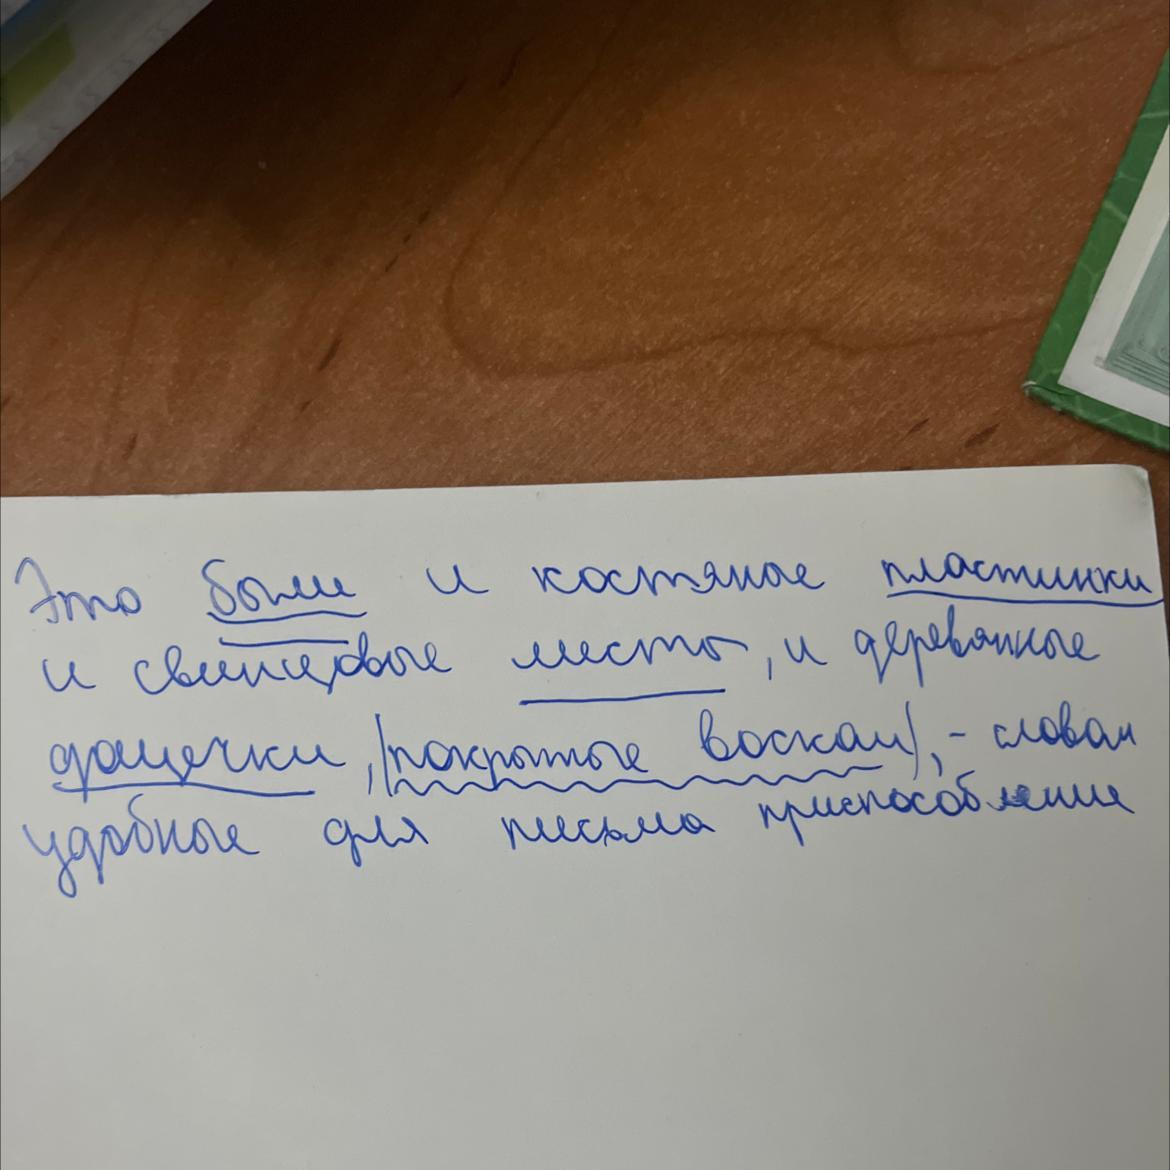 Это были и костяные пластинки
и свинцовые листы, и деревянные
дощечки, |покрытые воском|, - словом
удобные для письма приспособление